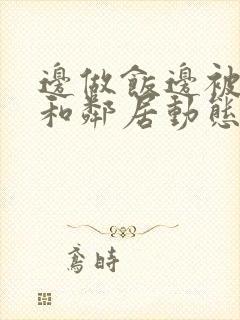 邊做飯邊被
和鄰居動態
鳶時